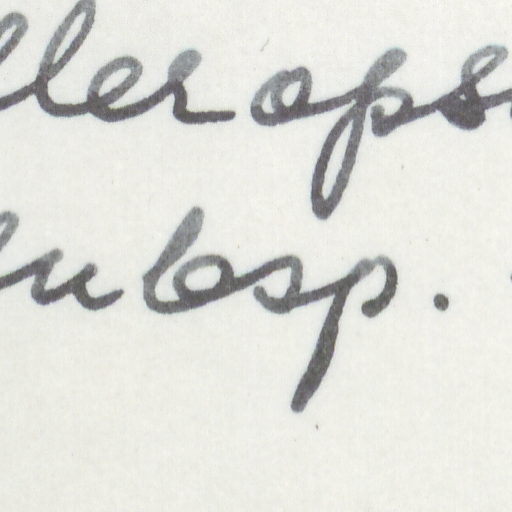 ller ops
ubsp.